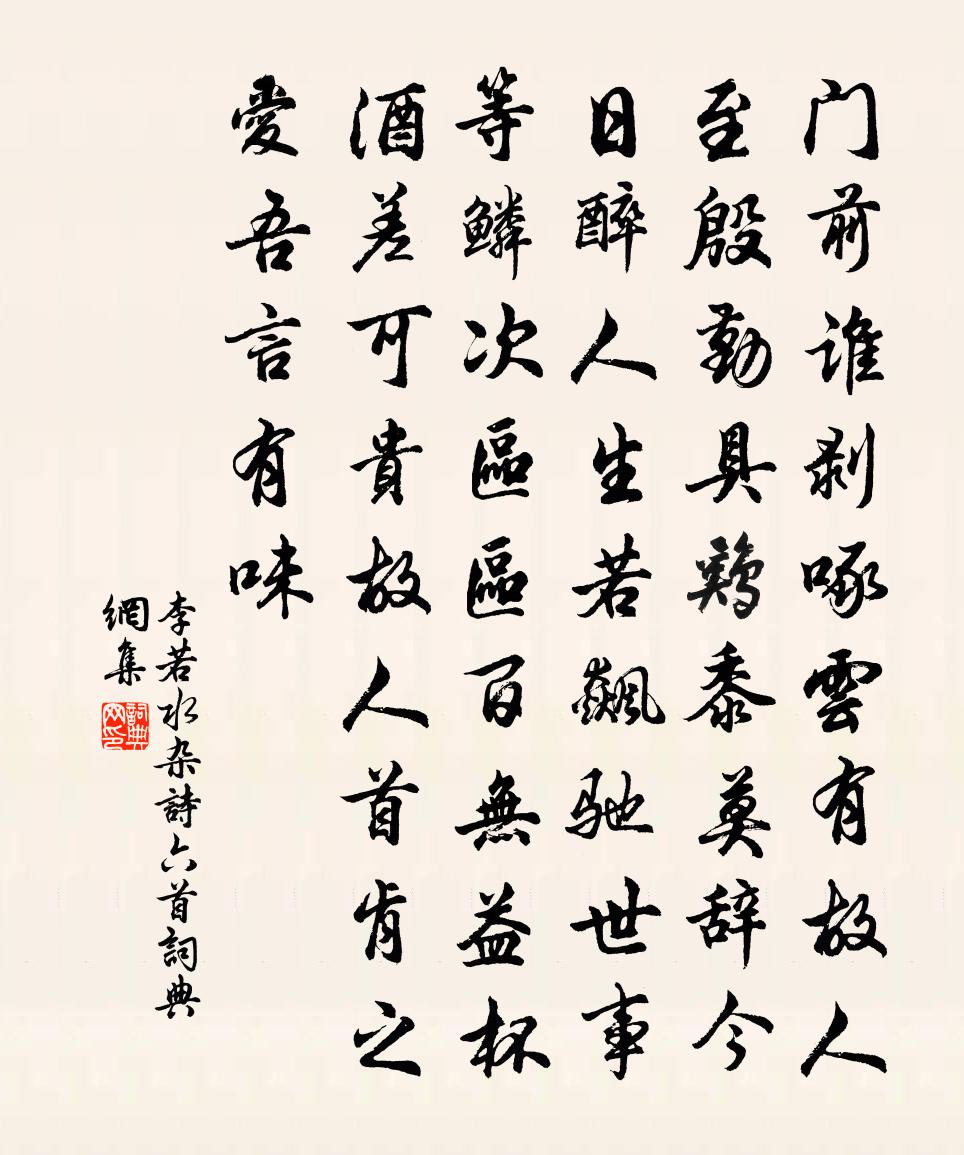 门前谁剥啄雲有故人
至殷勤具鷄黍莫辞今
日醉人生若飙驰世事
等鳞次區區百無益杯
酒差可貴故人首肯之
愛吾言有味
李若水杂詩六首詞典
網集
詞典
网印